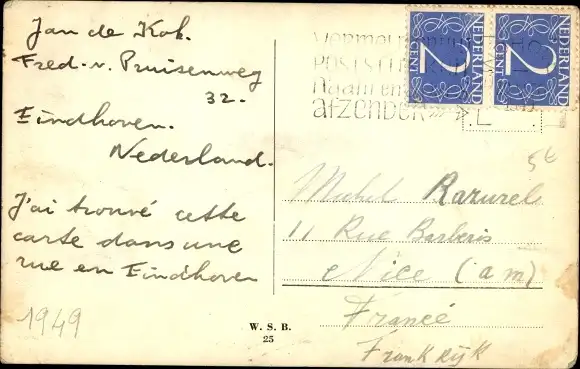 Jan de Kok.
Fred. v. Pruisenweg
32.
Eindhoven.
Nederland.
J'ai trouvé cette
carte dans une
rue en Eindhoven
1949
W. S. B.
25
NEDERLAND
2
CENT
NEDERLAND
2
CENT
VERMEL
POSTSTE
naam en
afzender
5€
Michel Razurel
11 Rue Barberis
Nice (a m)
Francé
Frankrijk